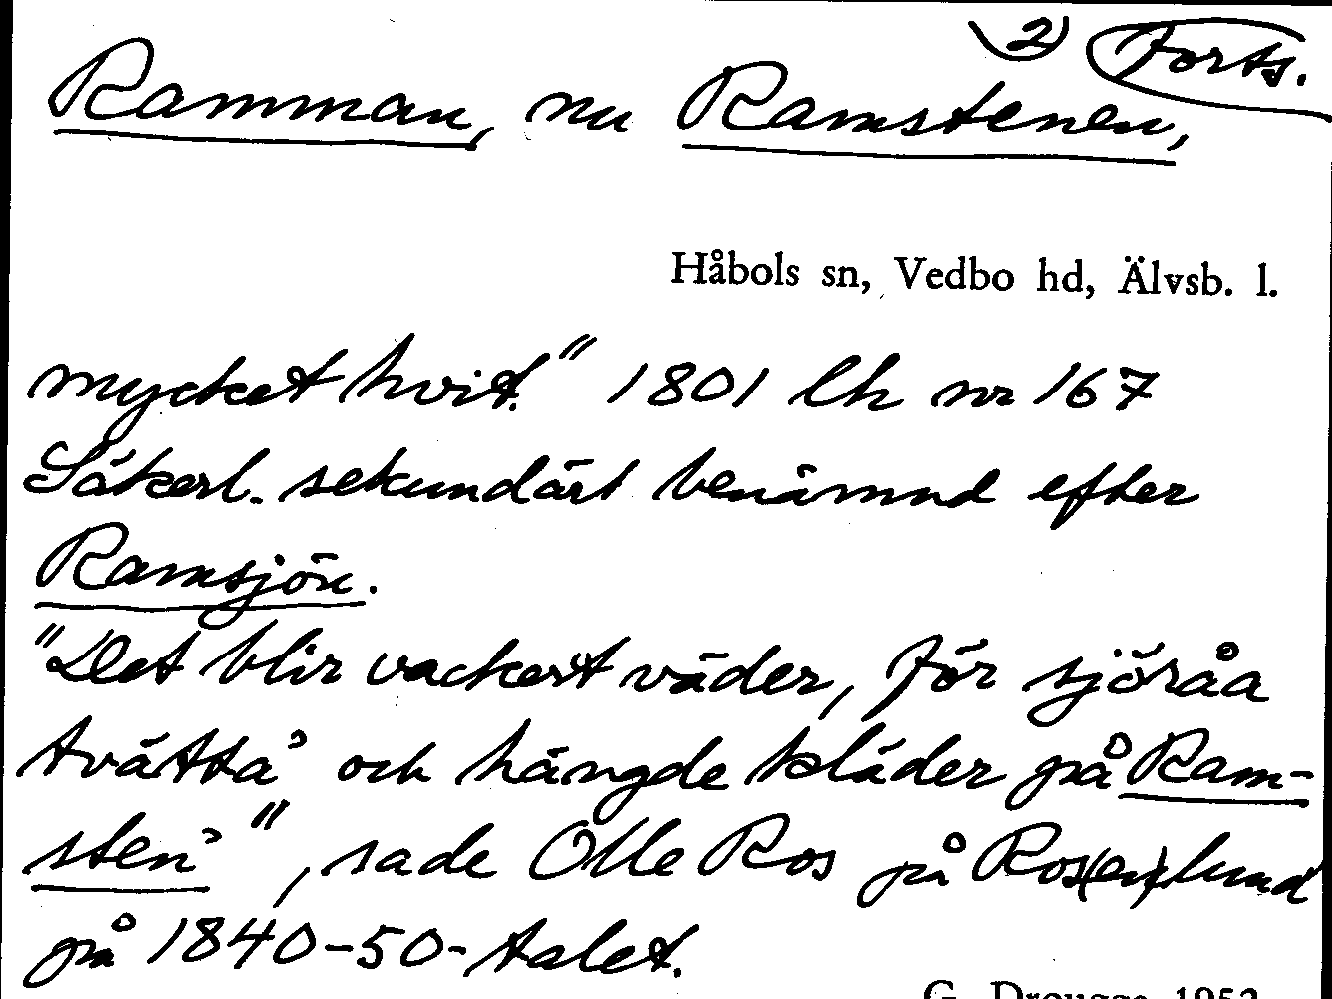 2) Forts.
Ramman, nu Ramstenen,
Håbols sn, Vedbo hd, Älvsb. l.
mycket hvit." 1801 lh nr 167
Säkerl. sekundärt benämnd efter
Ramsjön.
"Det blir vackert väder, för sjöråa
tvätta' och hängde kläder på Ram-
sten'", sade Olle Ros på Ros(en)lund
på 1840-50-talet.
G. Drougge 1952